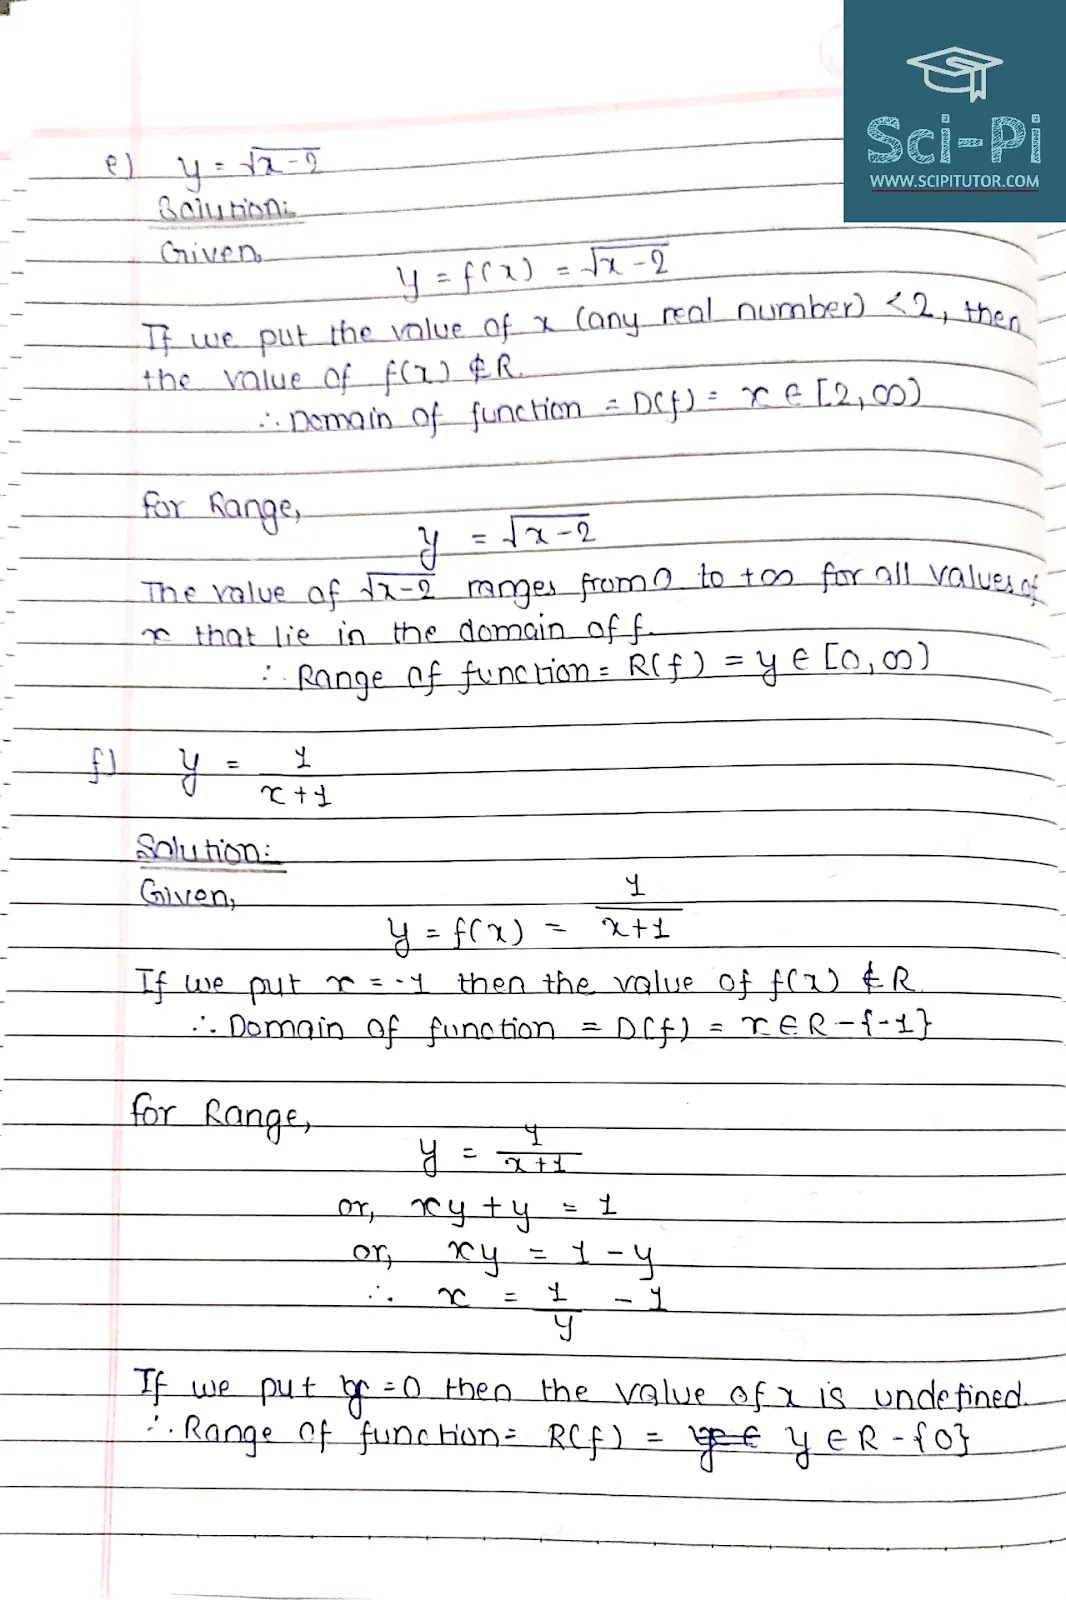 Sci-Pi
WWW.SCIPITUTOR.COM
e) y = √x-2
Solution:
Given,
y = f(x) = √x-2
If we put the value of x (any real number) <2, then
the value of f(x) ∉ R.
∴ Domain of function = D(f) = x ∈ [2,∞)
for Range,
y = √x-2
The value of √x-2 ranges from 0 to +∞ for all values of
x that lie in the domain of f.
∴ Range of function = R(f) = y ∈ [0,∞)
f) y = 1/(x+1)
Solution:
Given,
y = f(x) = 1/(x+1)
If we put x = -1 then the value of f(x) ∉ R.
∴ Domain of function = D(f) = x ∈ R - {-1}
for Range,
y = 1/(x+1)
or, xy + y = 1
or, xy = 1 - y
∴ x = 1/y - 1
If we put y = 0 then the value of x is undefined.
∴ Range of function = R(f) = y ∈ R - {0}